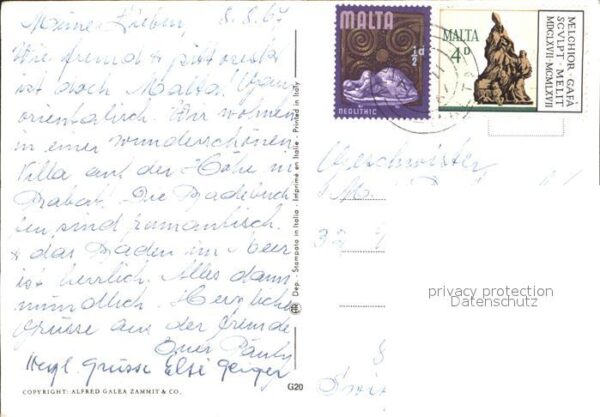 Meine Lieben, 8. 8. 67
Wie fremd & pittoresk
ist doch Malta! Ganz
orientalisch. Wir wohnen
in einer wunderschönen
Villa auf der Höhe in
Rabat. Die Badebuch-
ten sind romantisch
& das Baden im Meer
ist herrlich. Alles dann
mündlich. Herzliche
Grüsse aus der Fremde
Euer Pauly
Herzl. Grüsse Else Geiger
COPYRIGHT: ALFRED GALEA ZAMMIT & CO.
G20
Dep. - Stampato in Italia - Imprimé en Italie - Printed in Italy
MALTA
½d
NEOLITHIC
MALTA
4D
MELCHIOR GAFÀ
SCVLPT · MELIT
MDCLXVII · MCMLXVII
Geschwister
privacy protection
Datenschutz